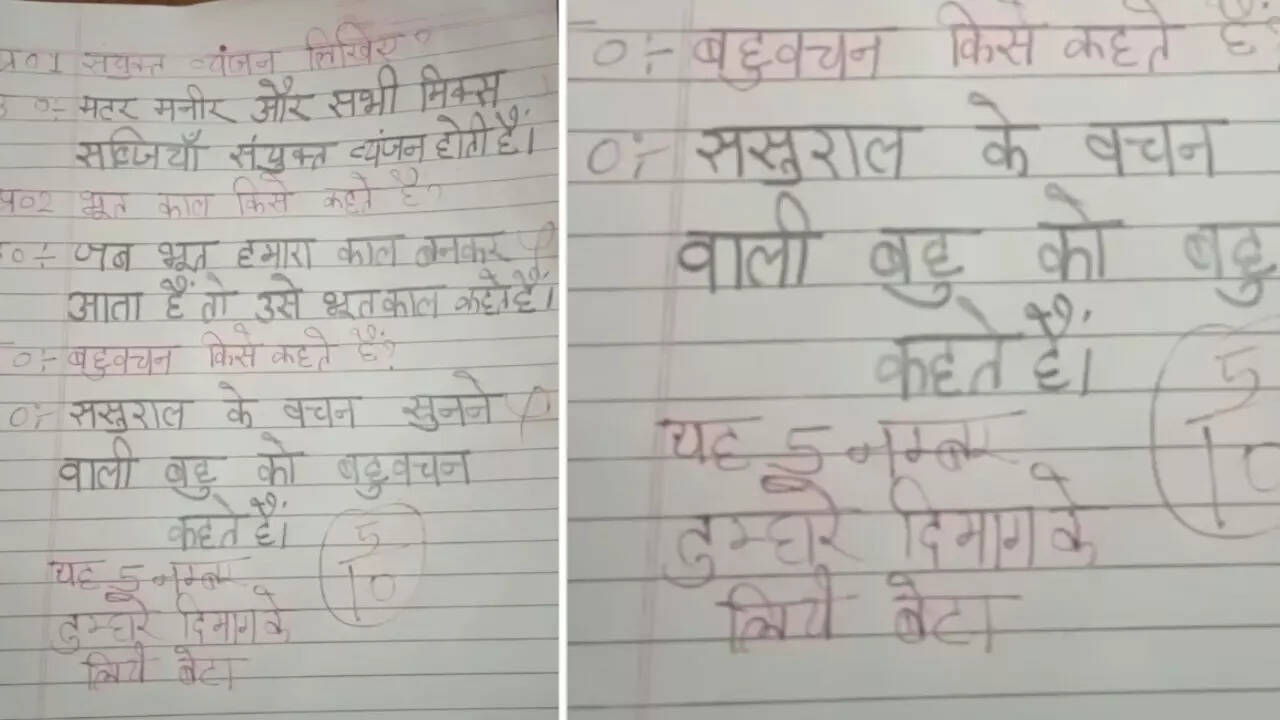 प्र०1 संयुक्त व्यंजन लिखिए?
उ०:- मटर मनीर और सभी मिक्स
सब्जियाँ संयुक्त व्यंजन होती हैं।
प्र०2 भूत काल किसे कहते है?
उ०:- जब भूत हमारा काल बनकर
आता हैं तो उसे भूतकाल कहते हैं।
०:- बहुवचन किसे कहते हैं?
०:- ससुराल के वचन सुनने
वाली बहु को बहुवचन
कहते हैं।
5/10
यह 5 नम्बर
तुम्हारे दिमाग के
लिये बेटा
०:- बहुवचन किसे कहते हैं
०:- ससुराल के वचन
वाली बहु को बहु
कहते हैं।
5/10
यह 5 नम्बर
तुम्हारे दिमाग के
लिये बेटा